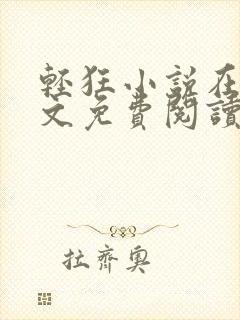 輕狂小說在
文免費閱讀
拉齊奧